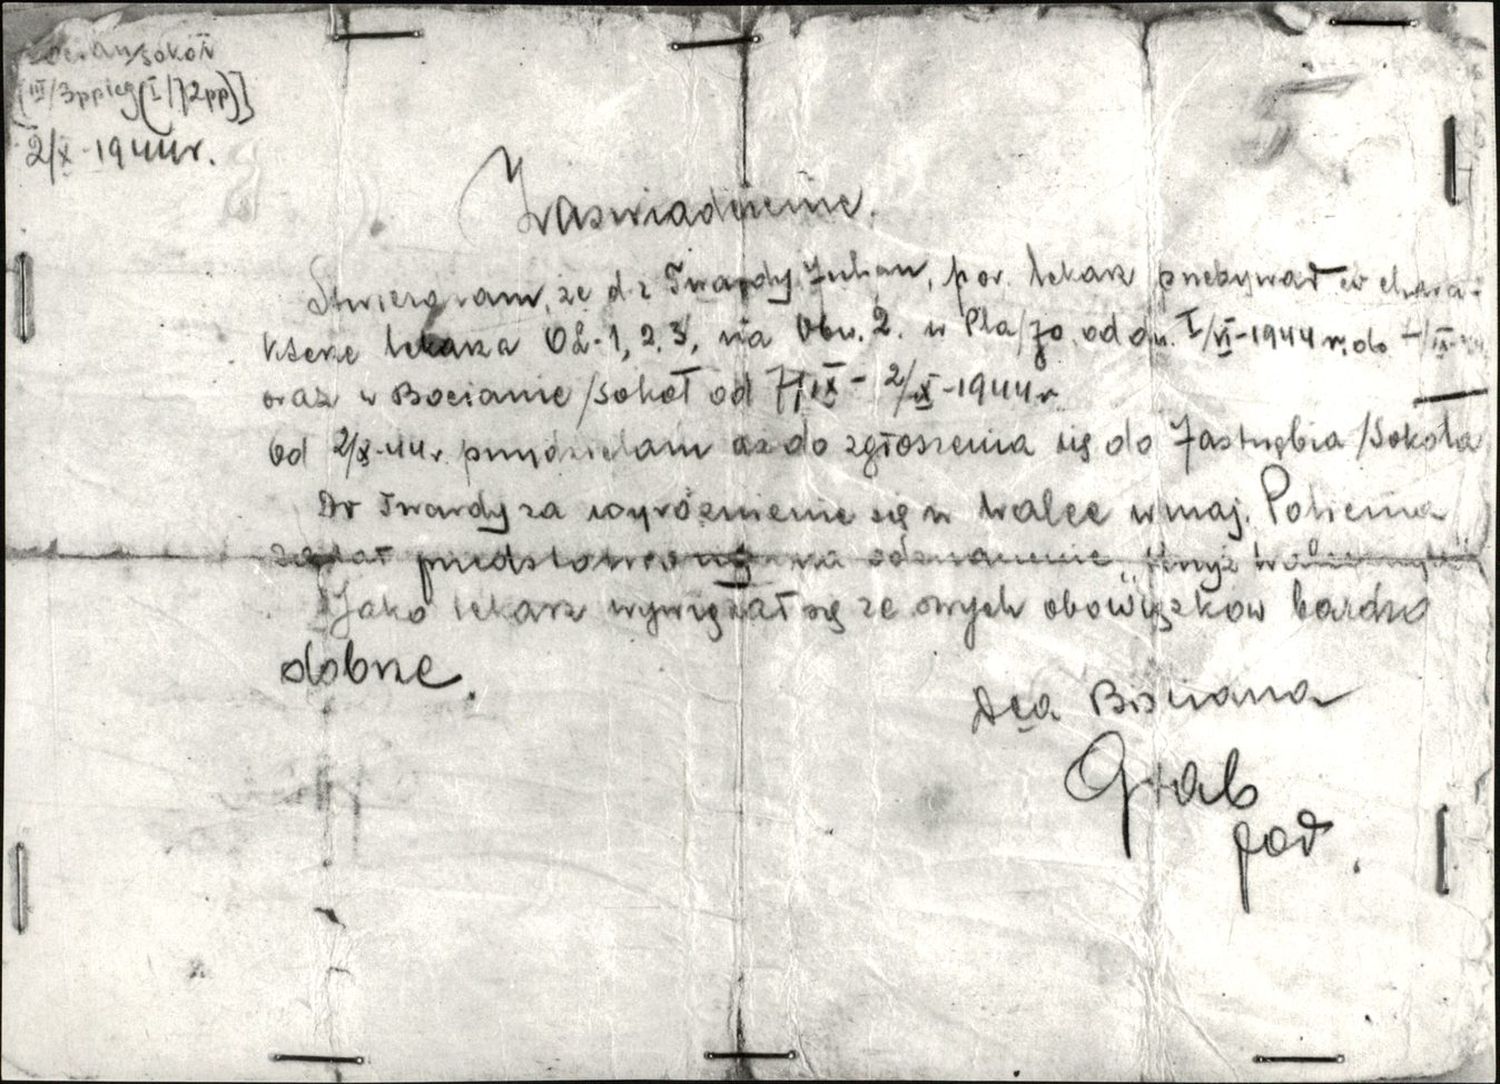 Bocian/Sokół
[III/3ppleg(I/72pp)]
2/X-1944r.
Zaswiadczenie.
Stwierdzam, że dr Twardy Julian, por. lekarz przebywał w chara-
kterze lekarza OL-1, 2, 3, na Obw. 2. w Pla/Jo. od dn. I/VI-1944 r. do
oraz w Bocianie/Sokół od IX- 2/X-1944r
Od 2/X-44r. przydzielam aż do zgłoszenia się do Jastrzębia/Sokoła
Dr Twardy za wyróżnienie się w walce w maj. Pohiema
został przedstawiony na odznaczenie Krzyż Walecznych"
Jako lekarz wywiązał się ze swych obowiązków bardzo
dobrze.
Dca Bociana
Grab
por.